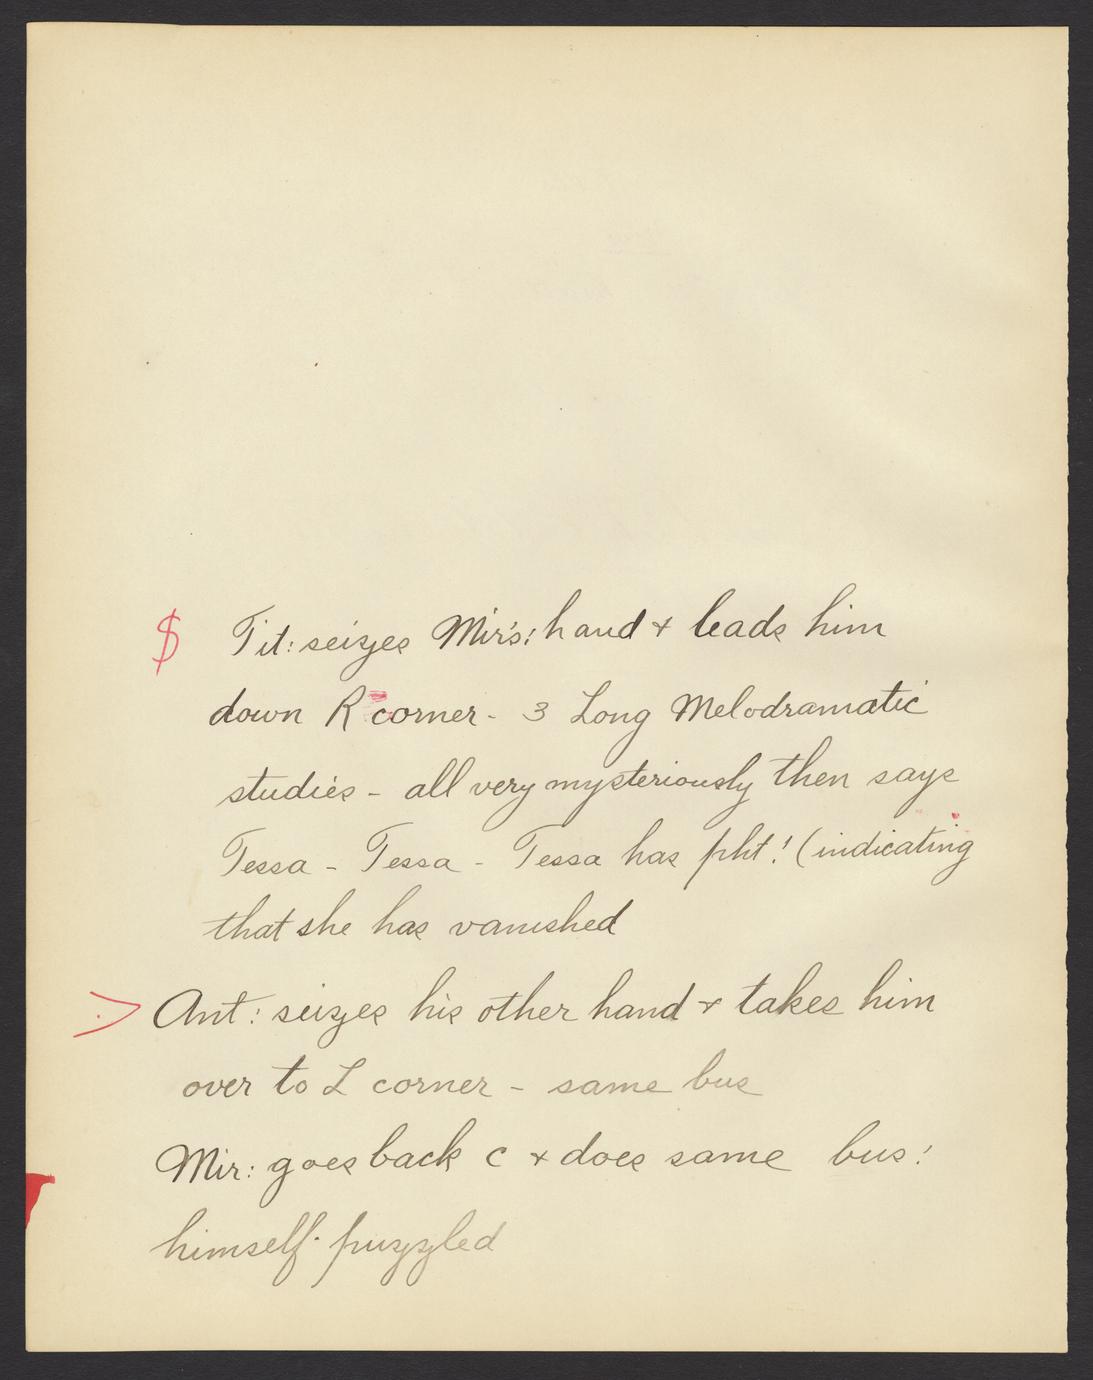 $ Tit: seizes Mir's: hand & leads him
down R corner - 3 Long Melodramatic
studies - all very mysteriously then says
Tessa - Tessa - Tessa has pht! (indicating
that she has vanished
> Ant: seizes his other hand & takes him
over to L corner - same bus
Mir: goes back C & does same bus:
himself puzzled